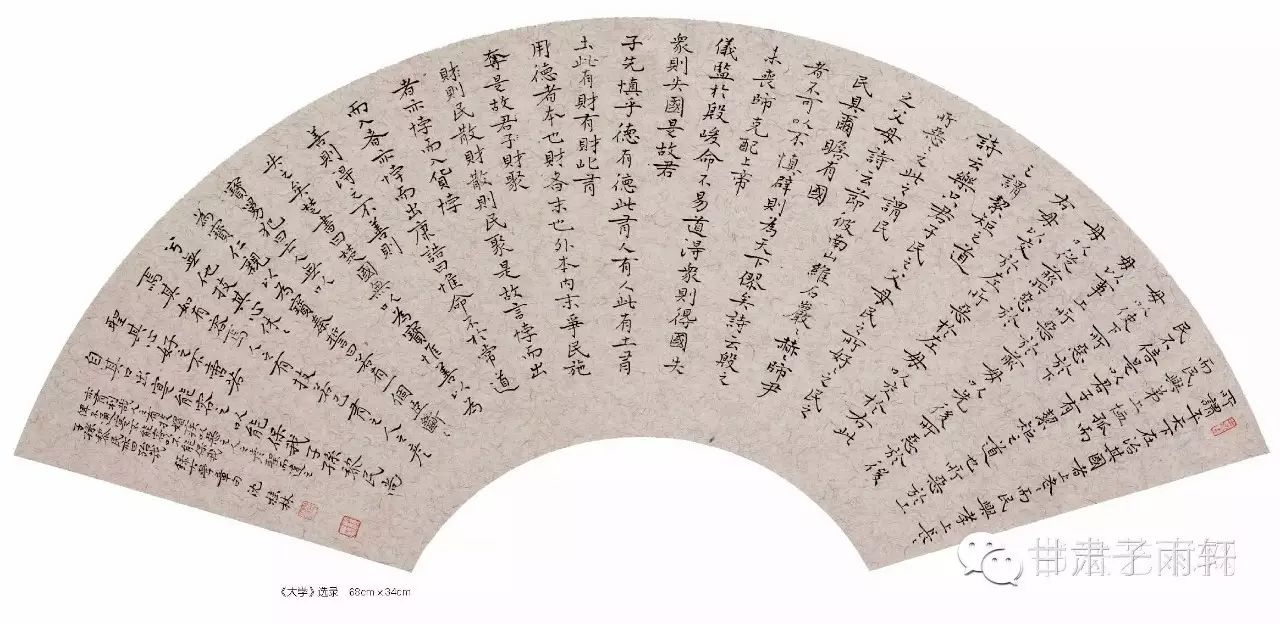 所謂平天下在治其國者上老老而民興孝上長長
而民興弟上恤孤而
民不倍是以君子有絜矩之道也所惡於上
毋以使下所惡於下
毋以事上所惡於前毋以先後所惡於後
毋以從前所惡於
右毋以交於左所惡於左毋以交於右此
之謂絜矩之道
詩云樂只君子民之父母民之所好好之民之
所惡惡之此之謂民
之父母詩云節彼南山維石巖巖赫赫師尹
民具爾瞻有國
者不可以不慎辟則為天下僇矣詩云殷之
未喪師克配上帝
儀監於殷峻命不易道得衆則得國失
衆則失國是故君
子先慎乎德有德此有人有人此有土有
土此有財有財此有
用德者本也財者末也外本内末爭民施
奪是故君子財聚
財則民散財散則民聚是故言悖而出
者亦悖而入貨悖
而入者亦悖而出康誥曰惟命不於常道
善則得之不善則
失之矣楚書曰楚國無以為寶惟善以為
寶舅犯曰亡人無以
為寶仁親以為寶秦誓曰若有一個臣斷斷
兮無他技其心休休
焉其如有容焉人之有技若己有之人之彥
聖其心好之不啻若
自其口出寔能容之以能保我子孫黎民尚
《大学》选录 68cm x 34cm
甘肃子雨轩